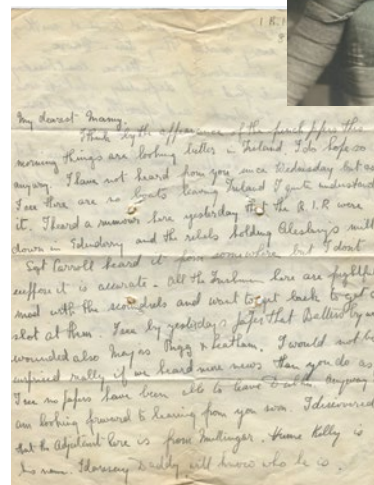 My dearest Mamy.
I think by the appearance of the french papers this
morning things are looking better in Ireland. I do hope so
anyway. I have not heard from you since Wednesday but as
I see there are no boats leaving Ireland I quite understand
it. I heard a rumour here yesterday that the R.I.R were
down in Edenderry and the rebels holding Alesburys mill
Sgt Carroll heard it from somewhere but I dont
suppose it is accurate. All the Irishmen here are
mad with the scoundrels and want to get back to get a
shot at them. I see by yesterdays papers that
wounded also Mayas & Leatham. I would not be
surprised really if we heard more news than you do as
I see no papers have been able to leave Dublin. Anyway
am looking forward to hearing from you soon. I discovered
that the Adjutant here is from Mullingar. Hume Kelly is
his name. I daresay Daddy will know who he is.